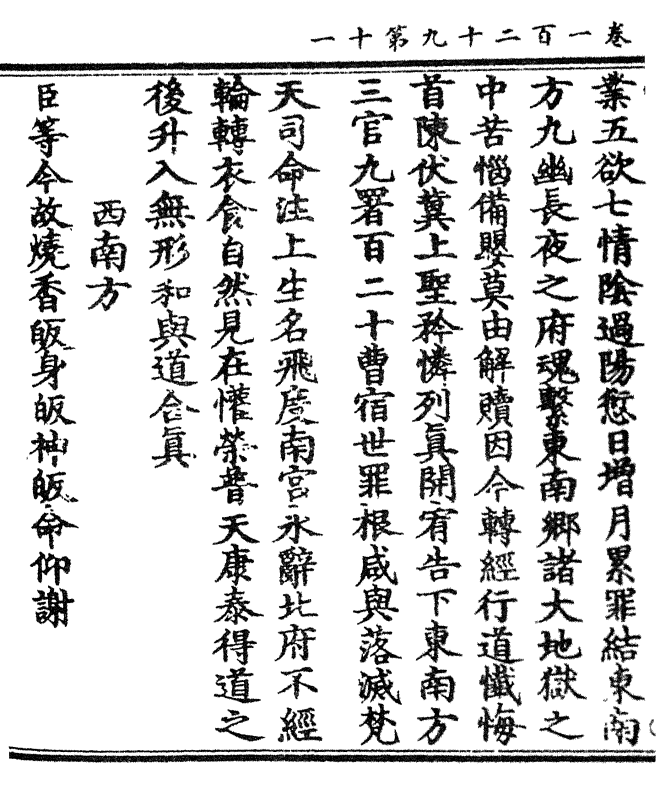 卷一百二十九第十一
業五欲七情陰過陽愆日增月累罪結東南
方九幽長夜之府魂繫東南鄉諸大地獄之
中苦惱備嬰莫由解贖因今轉經行道懺悔
首陳伏冀上聖矜憐列眞開宥告下東南方
三官九署百二十曹宿世罪根咸與落滅梵
天司命注上生名飛度南宮永辭北府不經
輪轉衣食自然見在懽榮普天康泰得道之
後升入無形和與道合眞
西南方
臣等今故燒香皈身皈神皈命仰謝